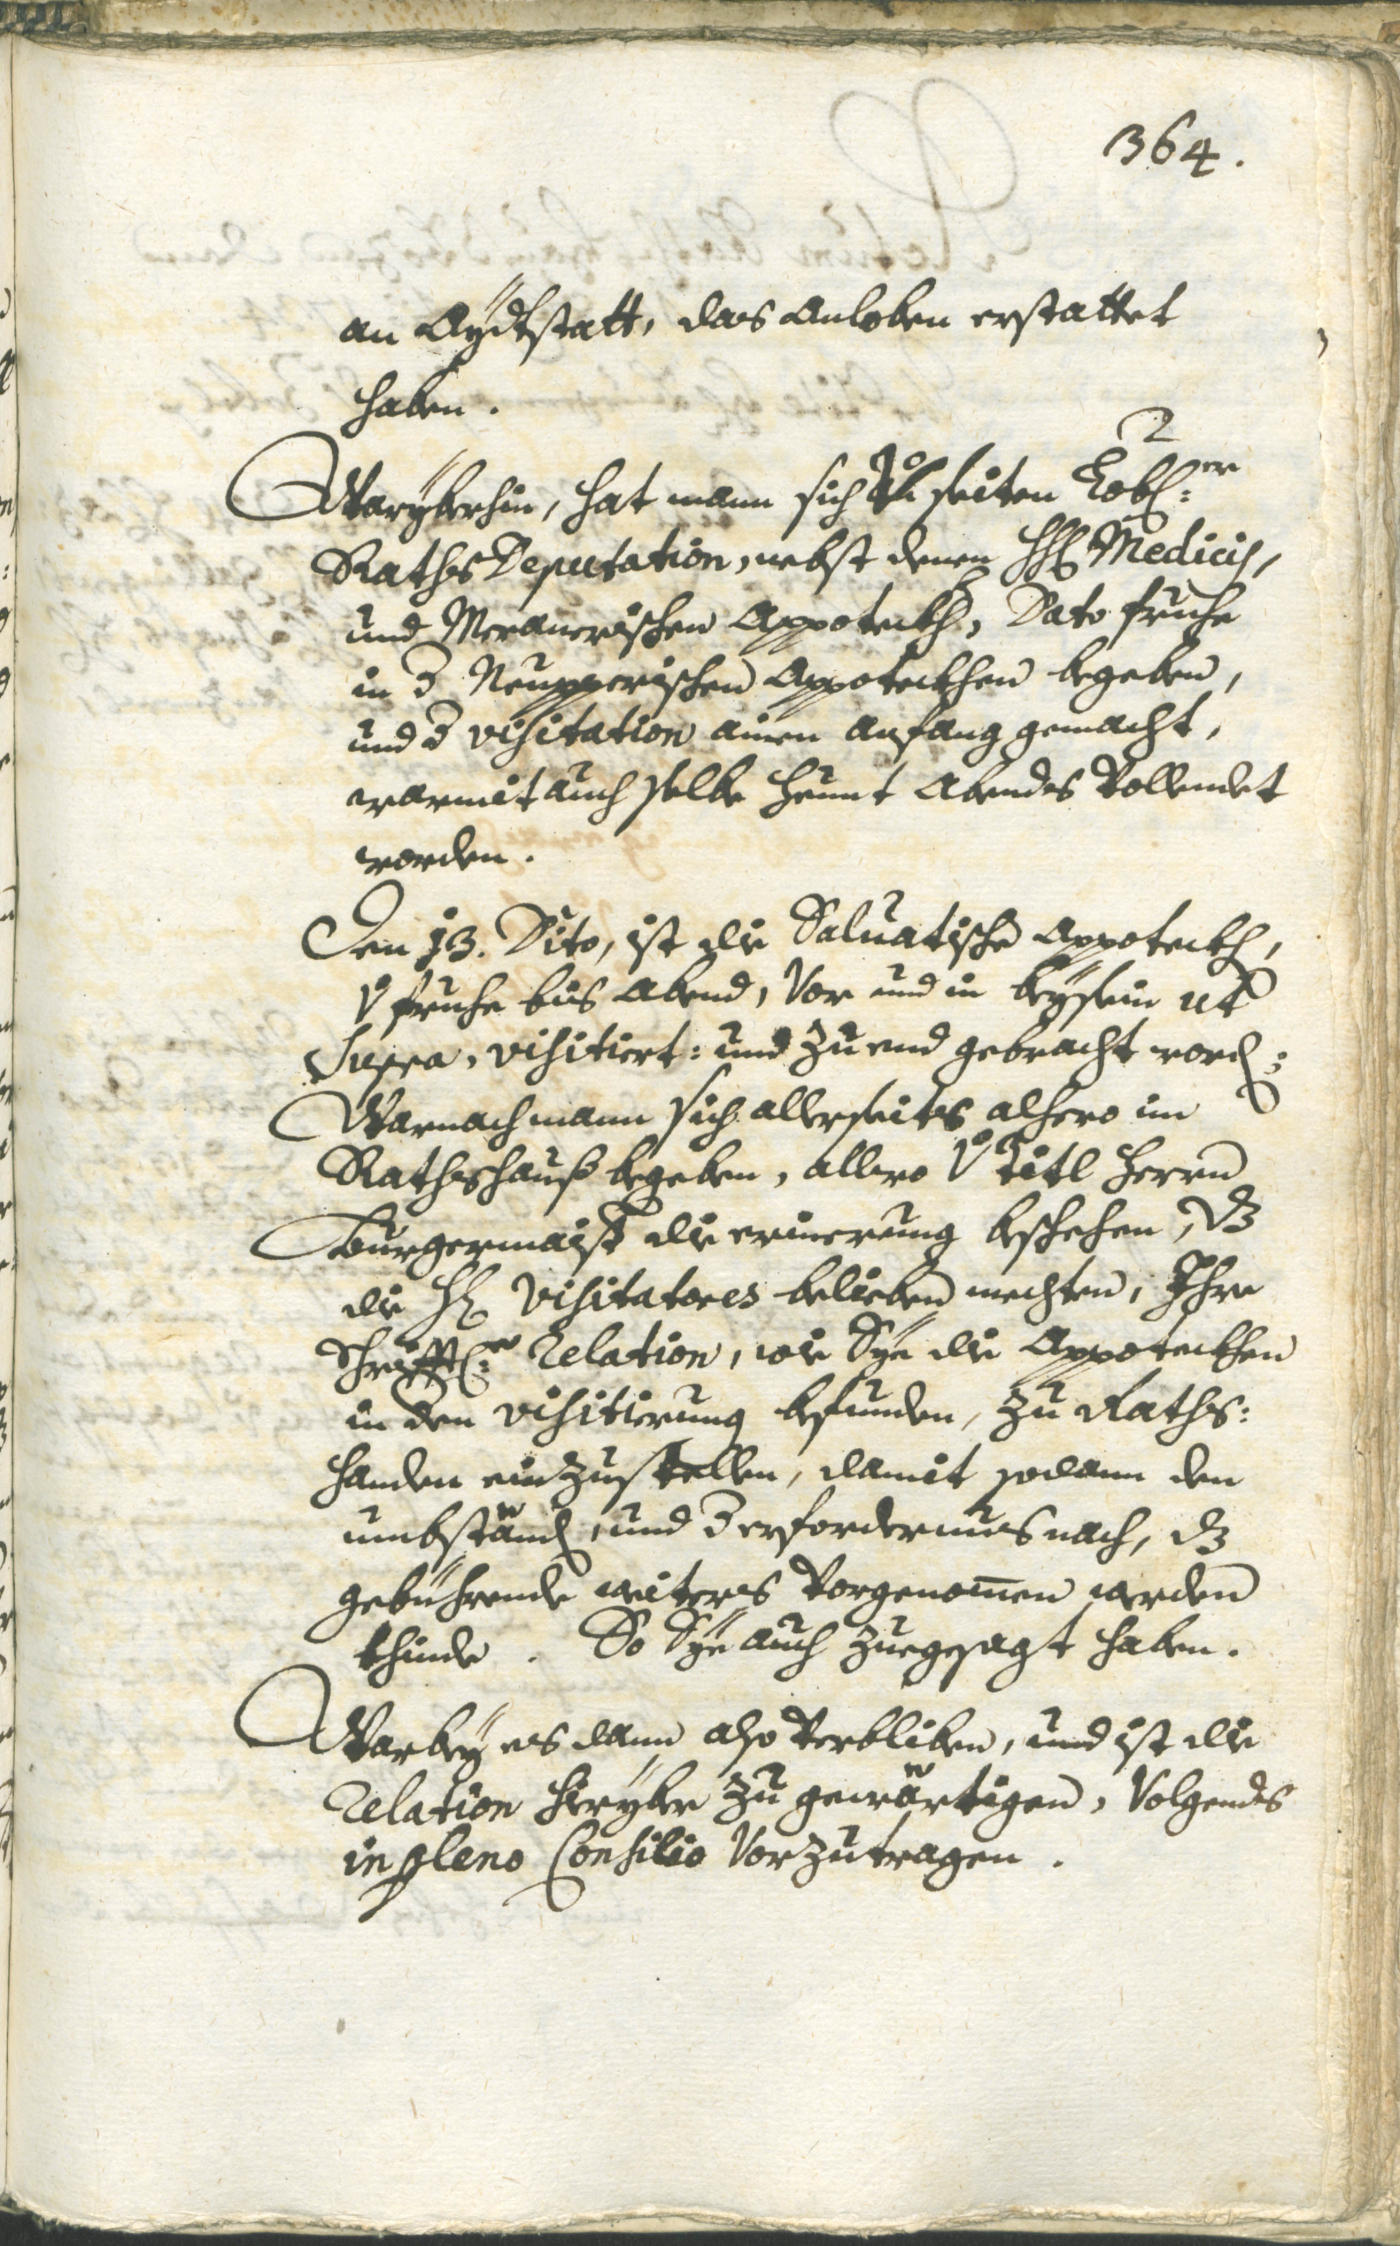 364.
an Aÿdtstatt, das Anloben erstattet
haben.
Warÿberhin, hat mann sich seiten Lobl:er
Raths Deputation, nebst denen HH: Medicis,
und Meranerischen Appoteckh, Dato fruhe
in d Neupperischen Appoteckhen begeben,
und d visitation ainen anfang gemacht,
warmit auch selbe heunt Abendts Vollendet
worden.
Den 13. Dito, ist die Saluatische Appoteckh,
V fruhe bis Abend, Vor und in beÿsein ut
Supra, visitiert: und zu end gebracht word:
Warnach mann sich allerseits alhero im
Rathshauß begeben, allwo V Titl Herrn
Burgermaist die erinerung beschehen, dz
die H: Visitatores belieben mechten, Ihre
Schrifftl:e Relation, wie Sÿe die Appoteckhen
in den visitierung befunden, zu Raths:
handen einzustellen, damit sodann den
umbständ, und d erfordernus nach, dz
gebührende weiters Vorgenom̄en werden
khinde. So Sÿe auch zuegesagt haben.
Warbeÿ es dann also Verbliben, und ist die
Relation hierÿber zu gewärtigen, Volgendts
in pleno Consilio Vorzutragen.